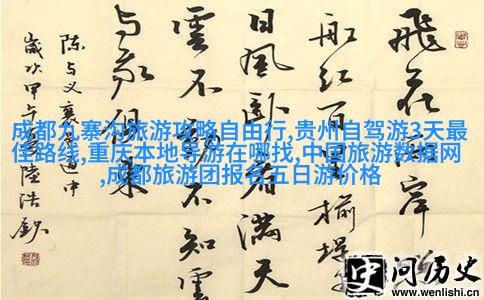 飛花兩岸
船紅百里榆堤
日風卧看滿天
雲不動不知雲
与我俱東
陈与义襄邑道中
歲次甲午陸浩
成都九寨沟旅游攻略自由行,贵州自驾游3天最
佳路线,重庆本地导游在哪找,中国旅游数据网
,成都旅游团报名五日游价格
问历史
www.wenlishi.cn